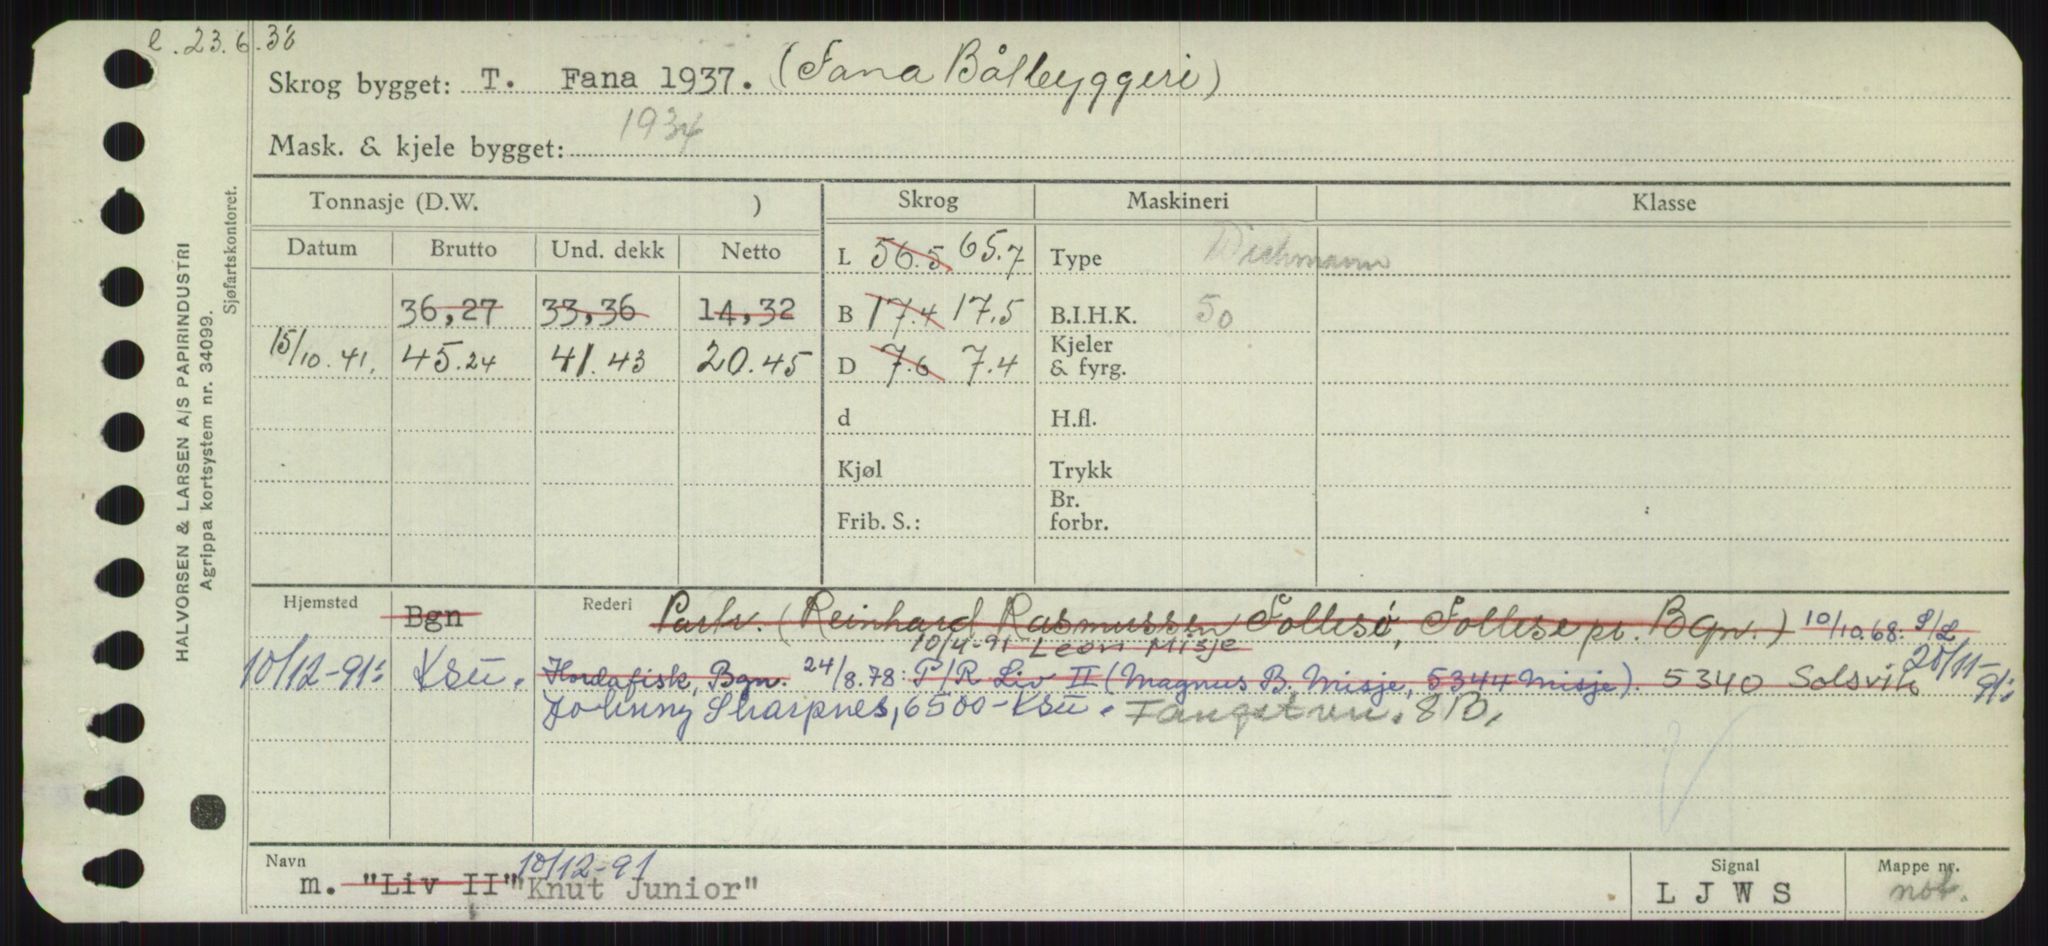 e. 23.6.38
Skrog bygget: T. Fana 1937. (Fana Båtbyggeri)
Mask. & kjele bygget: 1934
Tonnasje (D.W. ) Skrog Maskineri Klasse
Datum Brutto Und. dekk Netto L 56.5 65.7 Type Wichmann
36,27 33,36 14,32 B 17.4 17.5 B.I.H.K. 50
15/10.41. 45.24 41.43 20.45 D 7.6 7.4 Kjeler & fyrg.
d H.fl.
Kjøl Trykk
Frib. S.: Br. forbr.
Hjemsted Bgn Rederi Partr. (Reinhard Rasmussen Follesø, Follese pr. Bgn.) 10/10.68: P/L
10/4-91 Leon Misje
10/12-91: Ksu. Hordafisk, Bgn. 24/8.78: P/R Liv II (Magnus B. Misje, 5344 Misje). 5340 Solsvik 20/11-91:
Johnny Skarpnes, 6500-Ksu. Fangstru. 8B,
Navn 10/12-91 Signal Mappe nr.
m. "Liv II" "Knut Junior" L J W S not.
HALVORSEN & LARSEN A/S PAPIRINDUSTRI
Agrippa kortsystem nr. 34099.
Sjøfartskontoret.